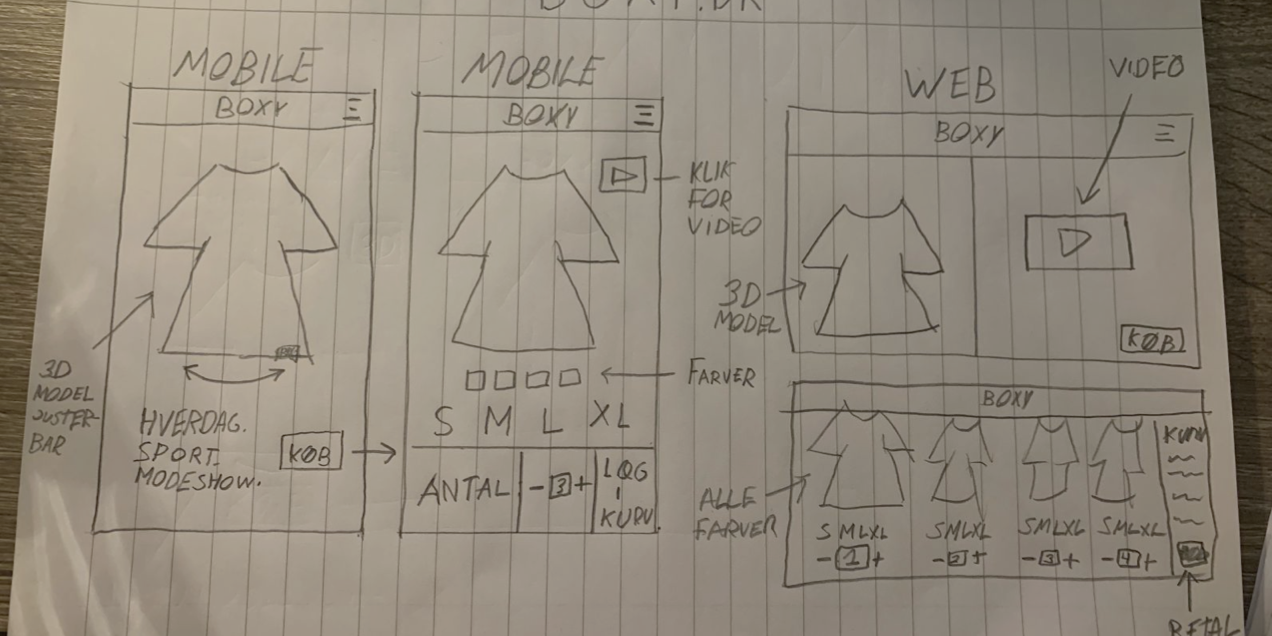 MOBILE
BOXY
3D
MODEL
JUSTER-
BAR
HVERDAG.
SPORT.
MODESHOW.
KØB
MOBILE
BOXY
KLIK
FOR
VIDEO
FARVER
S M L XL
ANTAL
- 3 +
LÆG
I
KURV
WEB
VIDEO
BOXY
3D
MODEL
KØB
BOXY
ALLE
FARVER
S M L XL
- 1 +
S M L XL
- 2 +
S M L XL
- 3 +
S M L XL
- 4 +
KURV
BETAL